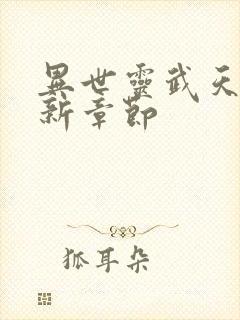 異世靈武天
新章節
狐耳朵